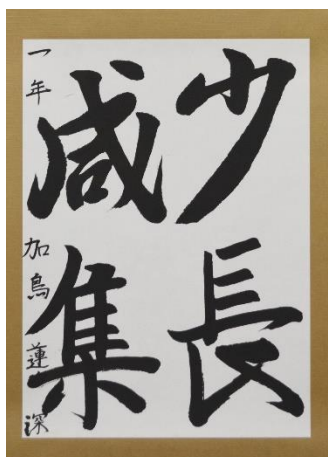 少長
咸集
一年 加鳥 蓮深